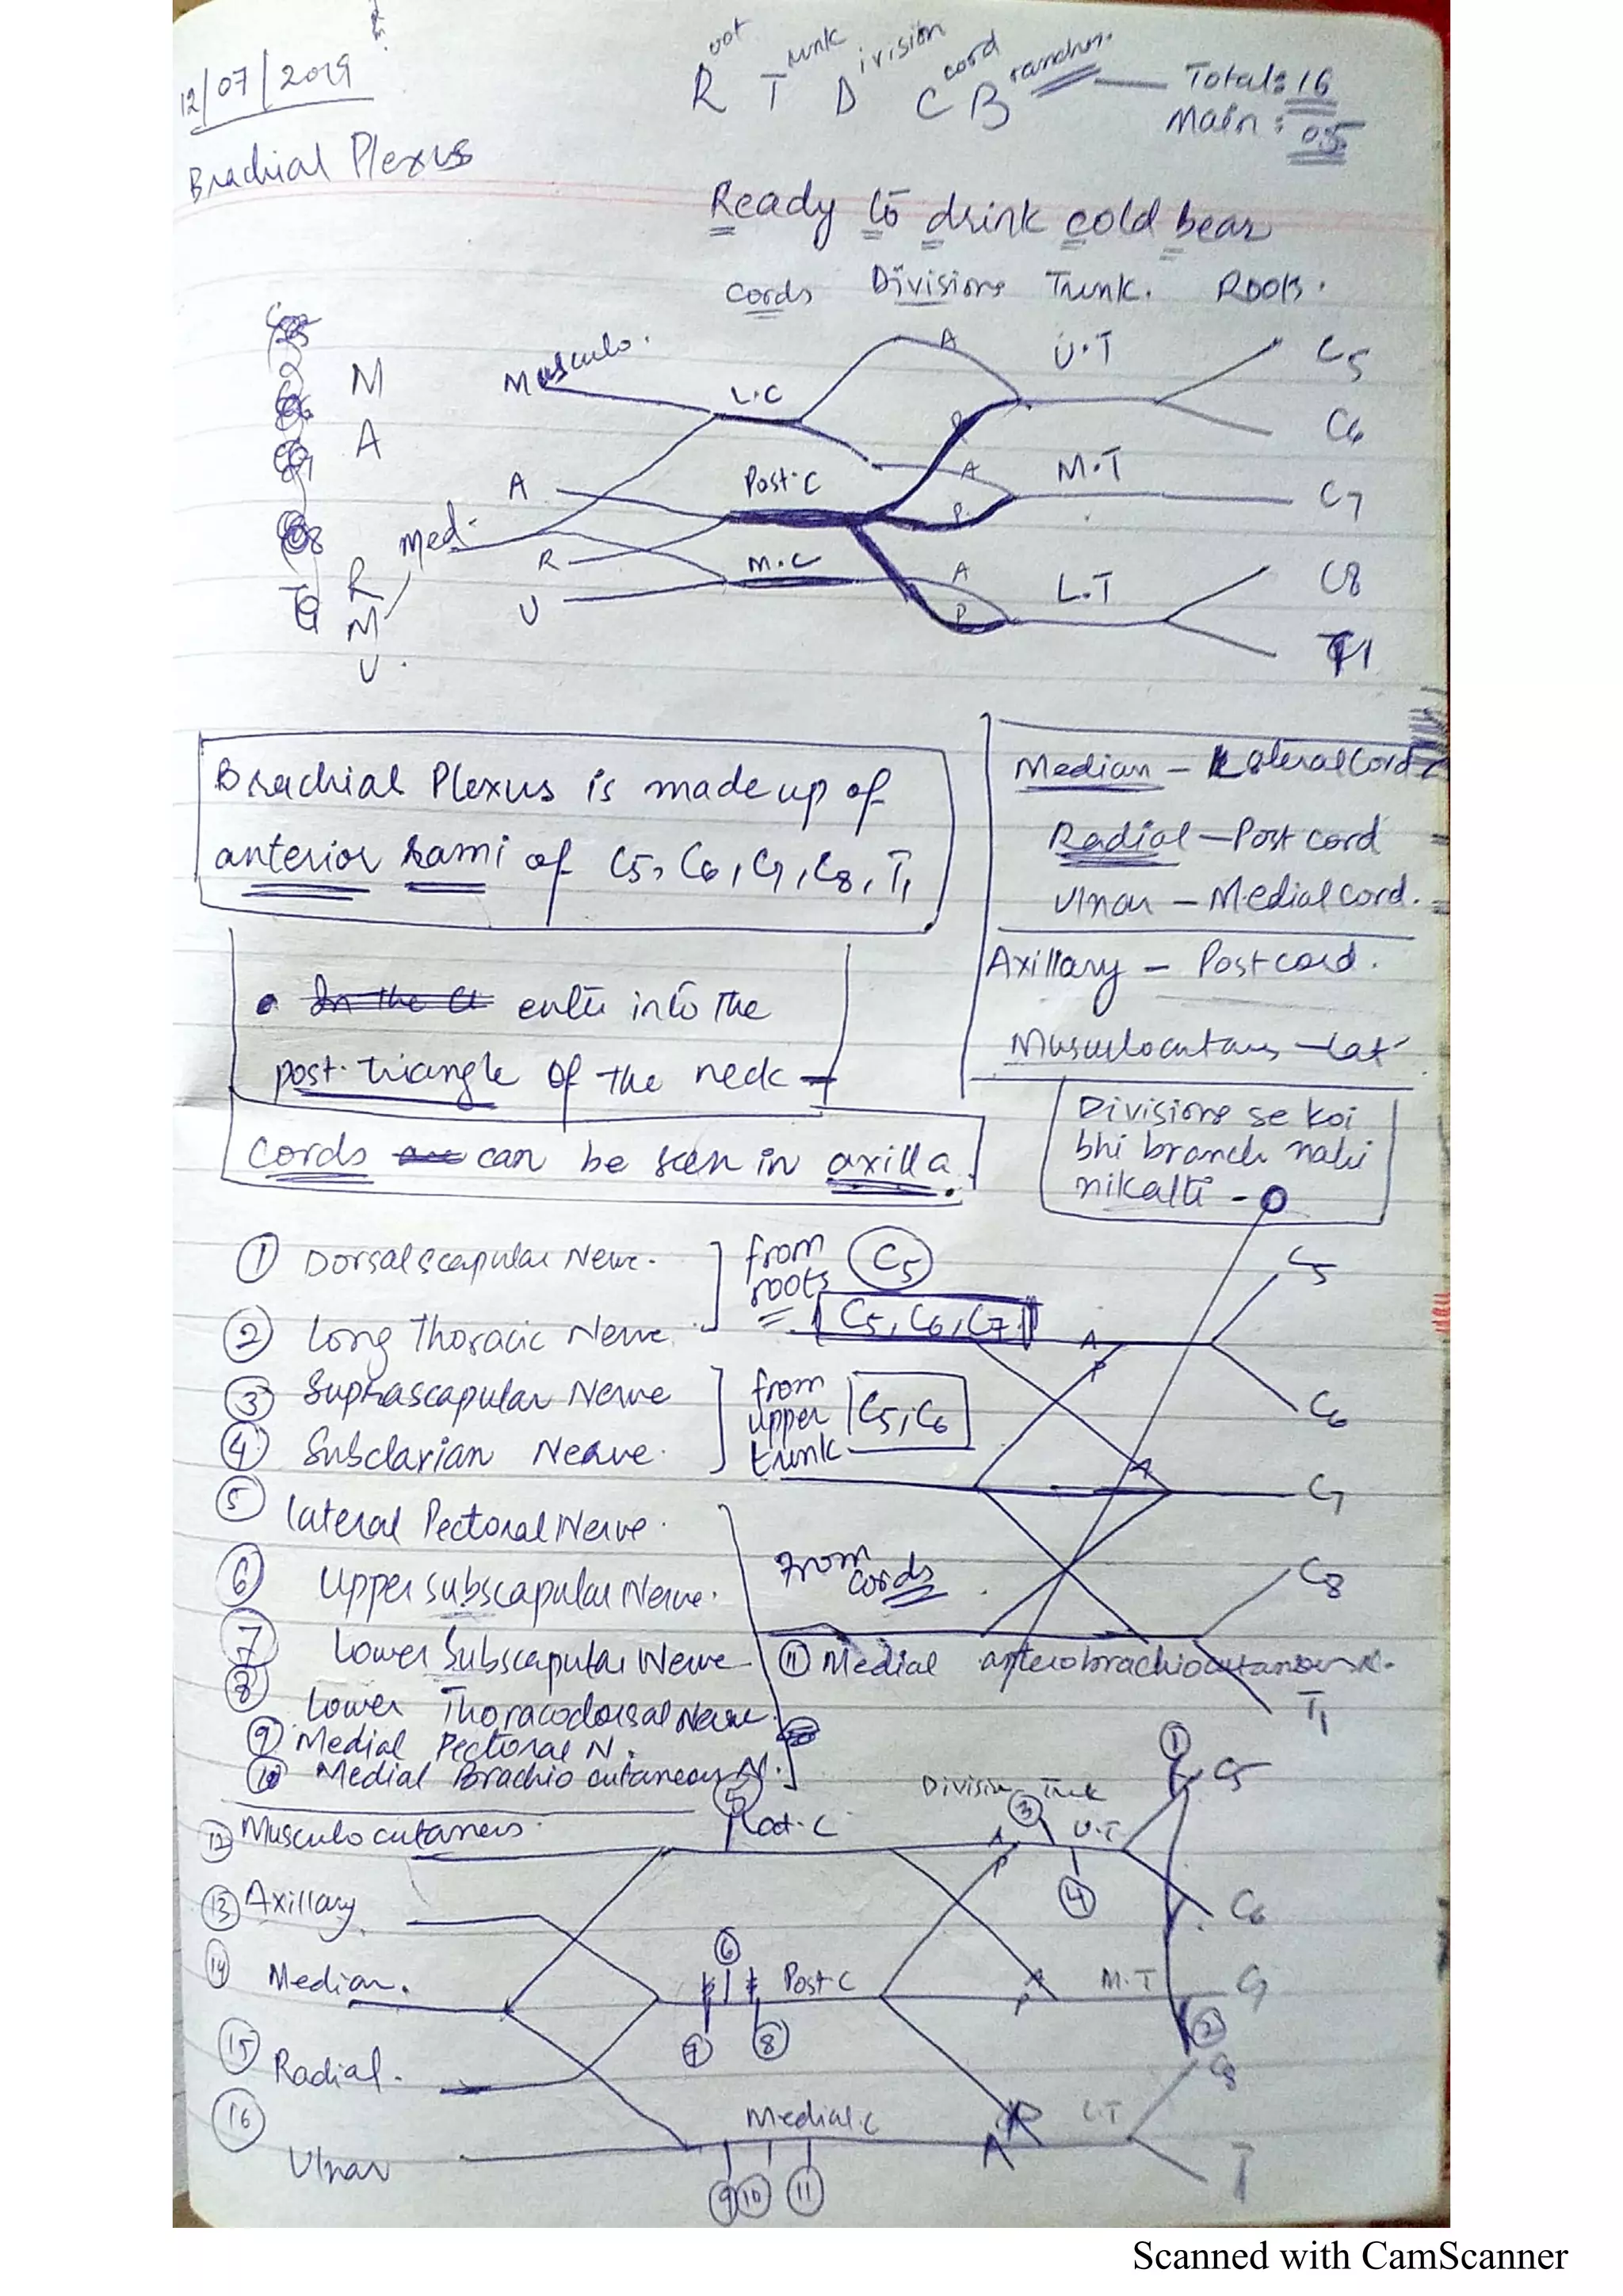 12/07/2019
Brachial Plexus
Root Trunk Division Cord Branches — Total: 16
Main: 05
Ready to drink cold bear
Cords Divisions Trunk. Roots.
Musculo. L.C A U.T C5
M
A
C6
A Post.C A M.T C7
P
Med.
R M.C A L.T C8
U P T1
R
M
U.
Brachial Plexus is made up of
anterior rami of C5, C6, C7, C8, T1
Median - Lateral Cord
Radial - Post cord
Ulnar - Medial Cord.
Axillary - Post cord.
Musculocutaus - Lat
• In the enter into the
post. triangle of the neck
Cords are can be seen in axilla.
Divisions se koi
bhi branch nahi
nikalti -
① Dorsal scapular Nerve.
② Long Thoracic Nerve
from roots C5
C5, C6, C7
③ Suprascapular Nerve
④ Subclavian Nerve.
from upper trunk C5, C6
⑤ lateral Pectoral Nerve.
⑥ Upper subscapular Nerve.
⑦ Lower Subscapular Nerve
⑧ Lower Thoracodorsal Nerve.
⑨ Medial Pectoral N.
⑩ Medial Brachio cutaneous N.
From cords
⑪ Medial anterobrachiocutaneous N.
C5
A
P
C6
A
C7
C8
T1
Division Trunk
⑫ Musculocutaneus.
⑬ Axillary
⑭ Median.
⑮ Radial.
⑯ Ulnar
⑤ Lat. C A P ③ U.T ④ ① C5
C6
⑥ Post C A P M.T C7
⑦ ⑧ ②
C8
Medial.C A P L.T
⑨ ⑩ ⑪ T
Scanned with CamScanner